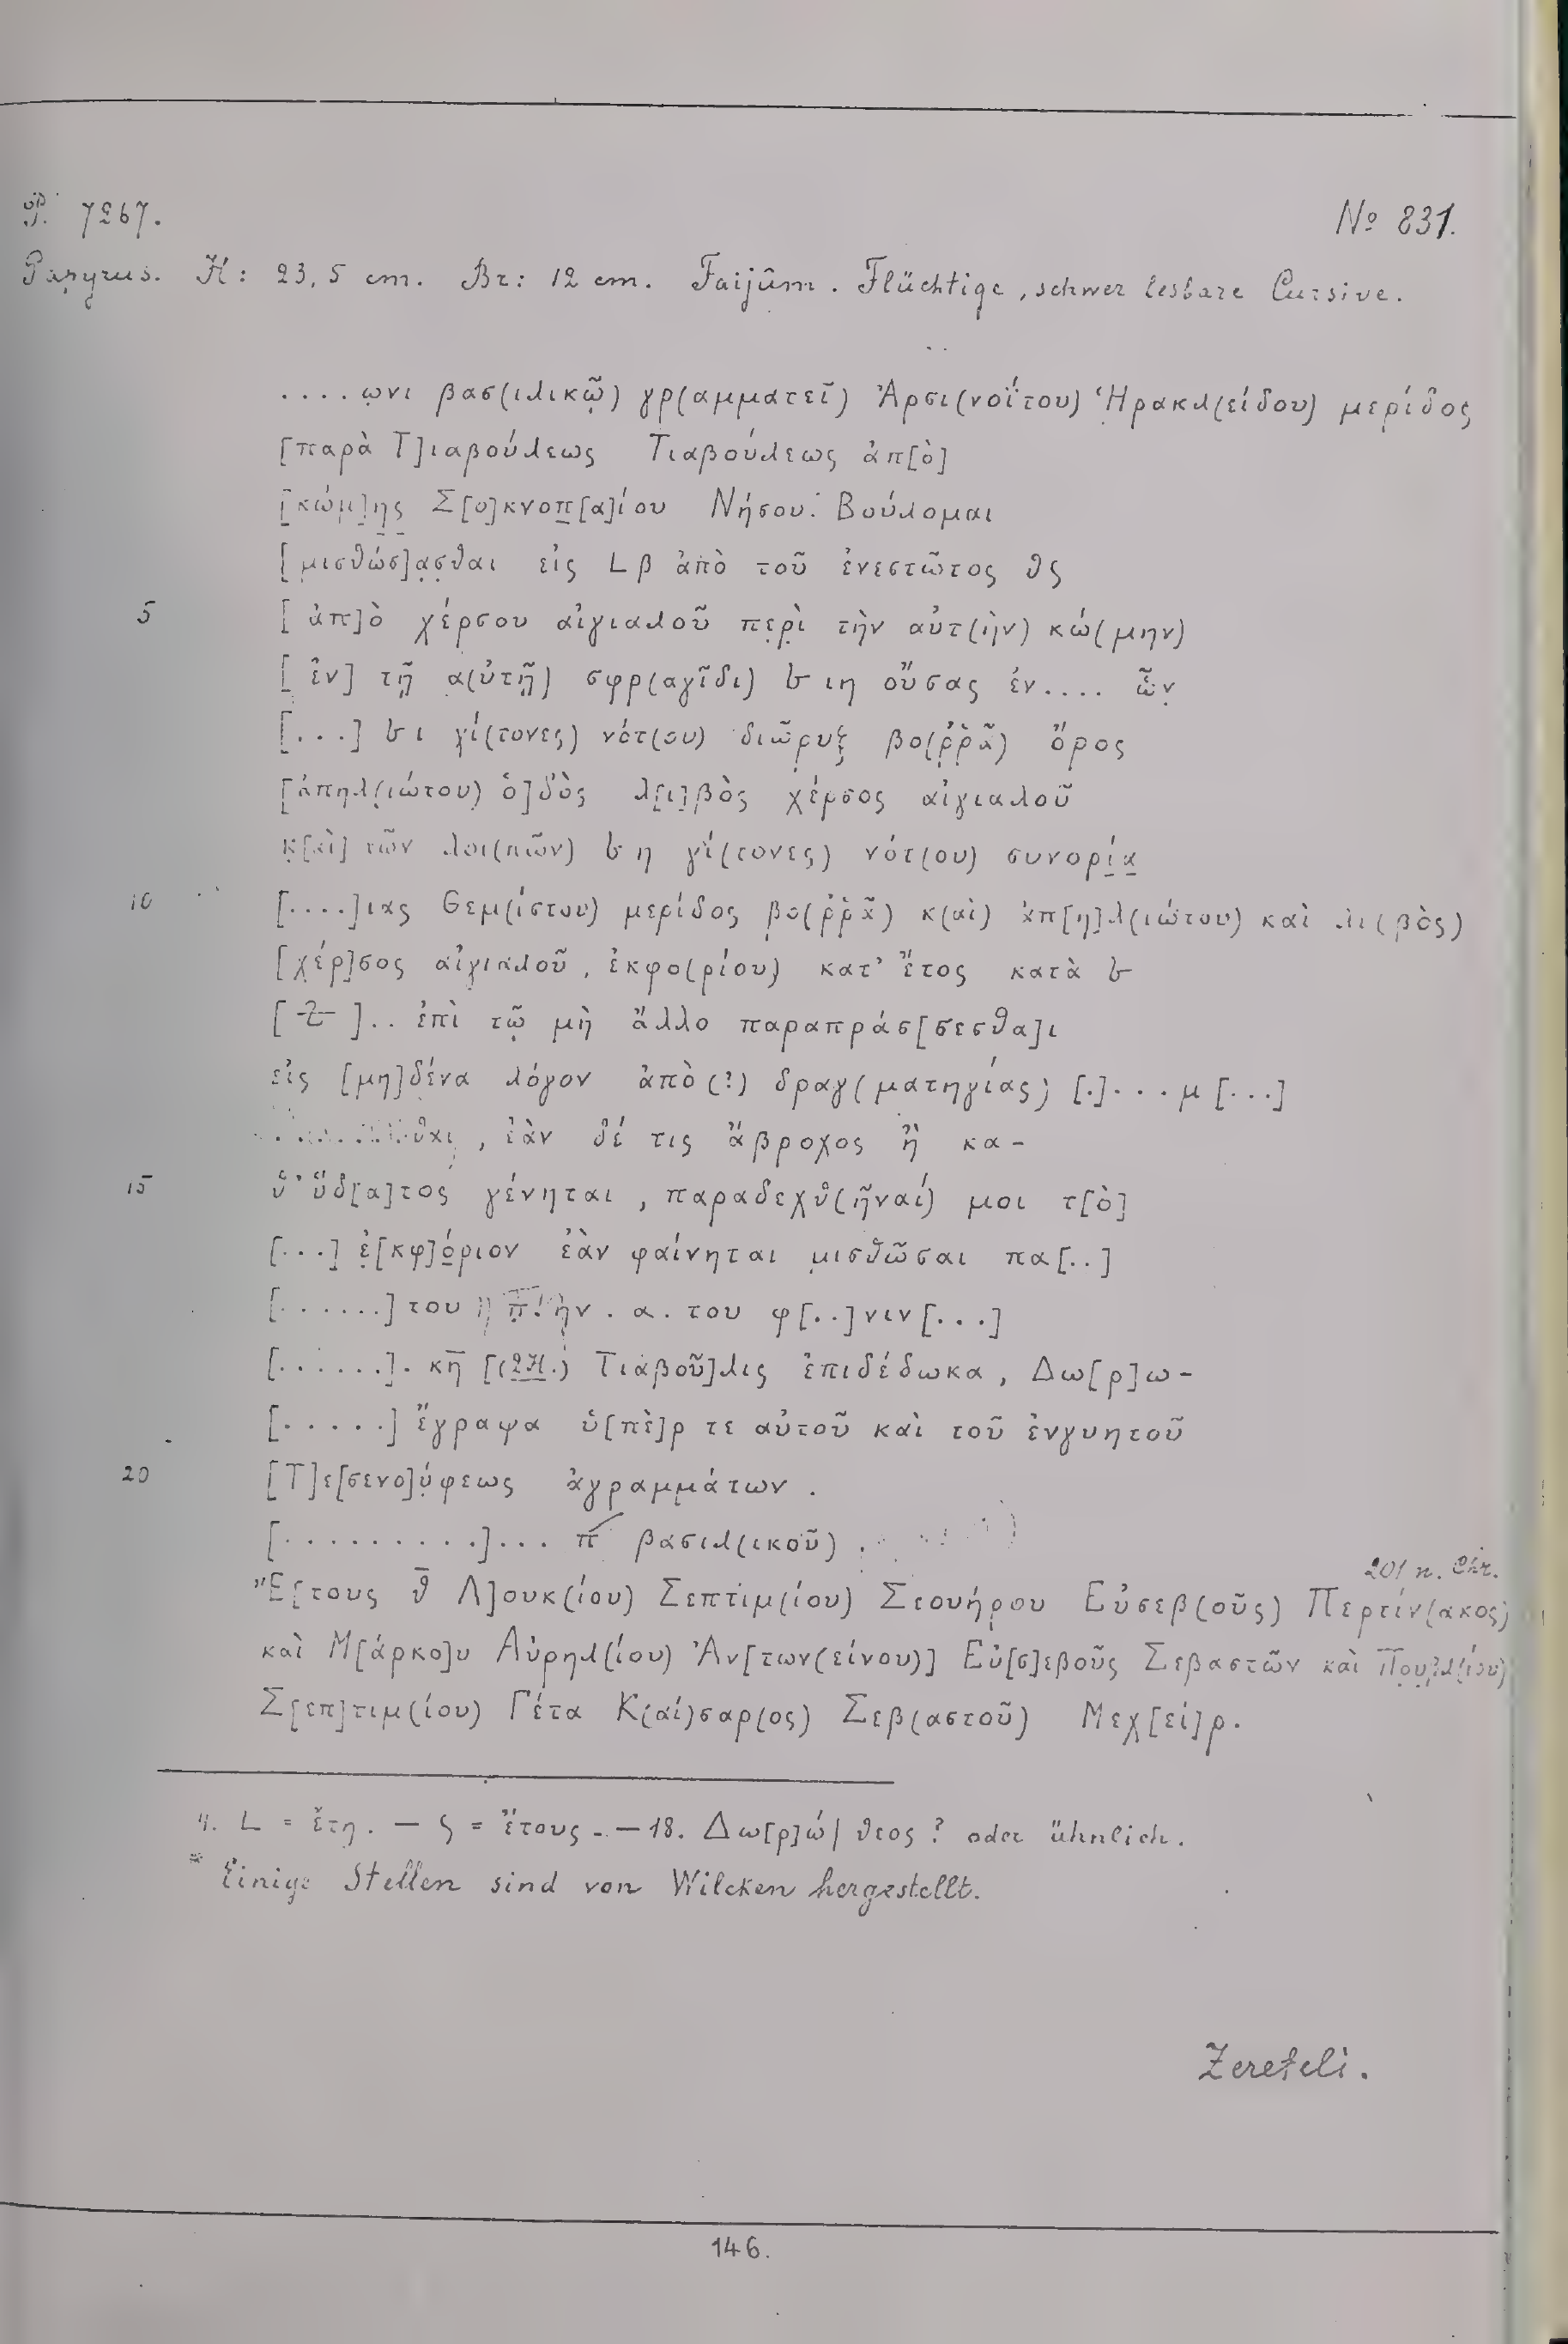 P. 7267.
No 831.
Papyrus. H: 23,5 cm. Br: 12 cm. Faijûm. Flüchtige, schwer lesbare Cursive.
....ωνι βασ(ιλικῷ) γρ(αμματεῖ) Ἀρσι(νοΐτου) Ἡρακλ(είδου) μερίδος
[παρὰ Τ]ιαβούλεως Τιαβούλεως ἀπ[ὸ]
[κώμ]ης Σ[ο]κνοπ[α]ίου Νήσου. Βούλομαι
[μισθώσ]ασθαι εἰς L β ἀπὸ τοῦ ἐνεστῶτος θς
5 [ἀπ]ὸ χέρσου αἰγιαλοῦ περὶ τὴν αὐτ(ὴν) κώ(μην)
[ἐν] τῇ α(ὐτῇ) σφρ(αγῖδι) 𐅹 ιη οὔσας ἐν.... ὧν
[...] 𐅹 ι γί(τονες) νότ(ου) διῶρυξ βο(ρρᾶ) ὄρος
[ἀπηλ(ιώτου) ὁ]δὸς λ[ι]βὸς χέρσος αἰγιαλοῦ
κ[αὶ] τῶν λοι(πῶν) 𐅹 η γί(τονες) νότ(ου) συνορία
10 [....]ιας Θεμ(ίστου) μερίδος βο(ρρᾶ) κ(αὶ) ἀπ[η]λ(ιώτου) καὶ λι(βὸς)
[χέρ]σος αἰγιαλοῦ, ἐκφο(ρίου) κατ' ἔτος κατὰ 𐅹
[ ].. ἐπὶ τῷ μὴ ἄλλο παραπράσ[σεσθα]ι
εἰς [μη]δένα λόγον ἀπὸ(?) δραγ(ματηγίας) [.]...μ[...]
θαι, ἐὰν δέ τις ἄβροχος ἢ κα-
15 θ' ὕδ[α]τος γένηται, παραδεχθ(ῆναί) μοι τ[ὸ]
[...] ἐ[κφ]όριον ἐὰν φαίνηται μισθῶσαι πα[..]
[......]του ην . α . του φ[..]νιν[...]
[......]. κη [(2 H.) Τιαβοῦ]λις ἐπιδέδωκα, Δω[ρ]ω-
[.....] ἔγραψα ὑ[πὲ]ρ τε αὐτοῦ καὶ τοῦ ἐνγυητοῦ
20 [Τ]ε[σενο]ύφεως ἀγραμμάτων.
[.........]... π βασιλ(ικοῦ)
201 n. Chr.
Ἔ[τους θ Λ]ουκ(ίου) Σεπτιμ(ίου) Σεουήρου Εὐσεβ(οῦς) Περτίν(ακος)
καὶ Μ[άρκο]υ Αὐρηλ(ίου) Ἀν[των(είνου)] Εὐ[σ]εβοῦς Σεβαστῶν καὶ Πουβλ(ίου)
Σ[επ]τιμ(ίου) Γέτα Κ(αί)σαρ(ος) Σεβ(αστοῦ) Μεχ[εί]ρ.
4. L = ἔτη. — ς = ἔτους. — 18. Δω[ρ]ώ| θεος? oder ähnlich.
* Einige Stellen sind von Wilcken hergestellt.
Zereteli.
146.